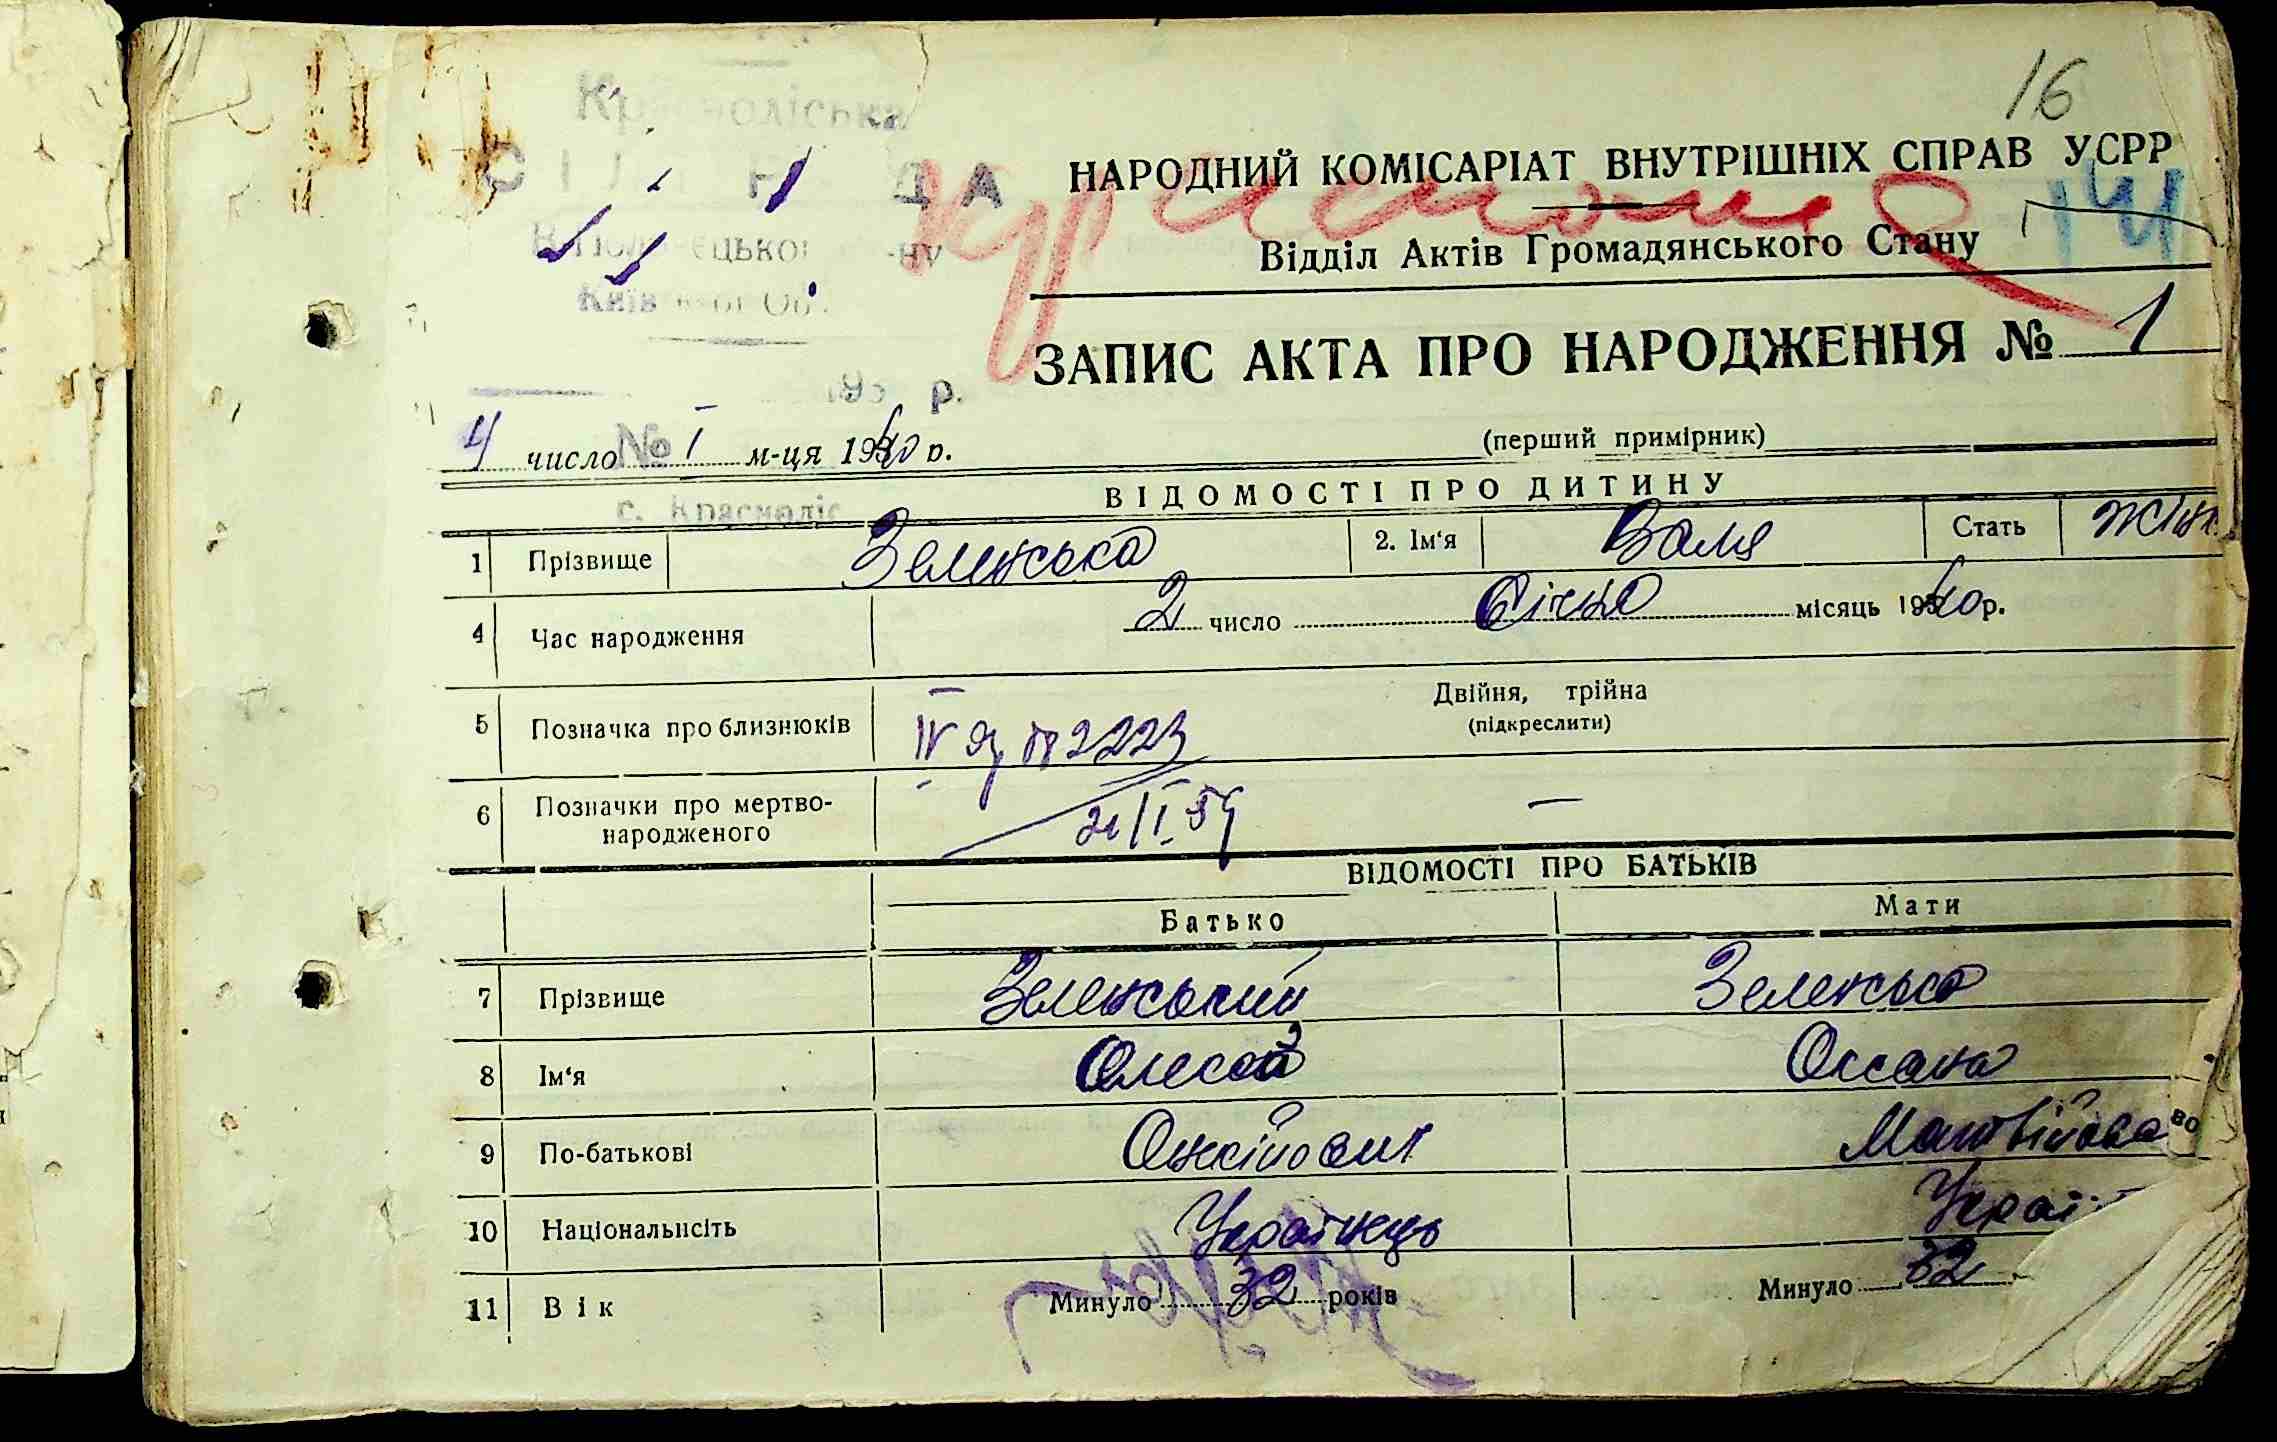 16
Красноліська
НАРОДНИЙ КОМІСАРІАТ ВНУТРІШНІХ СПРАВ УСРР
141
Відділ Актів Громадянського Стану
ЗАПИС АКТА ПРО НАРОДЖЕННЯ № 1
р.
№
4 число I м-ця 1940 р.
(перший примірник)
ВІДОМОСТІ ПРО ДИТИНУ
с. Красноліс
1 Прізвище Зеленська 2. Ім‘я Валя Стать Жін.
4 Час народження 2 число Січня місяць 1940 р.
5 Позначка про близнюків Двійня, трійна
(підкреслити)
6 Позначки про мертво-
народженого —
ВІДОМОСТІ ПРО БАТЬКІВ
Батько Мати
7 Прізвище Зеленський Зеленська
8 Ім‘я Оксана
9 По-батькові Матвійовна
10 Національність Українець Украї
11 Вік Минуло 32 років Минуло 32